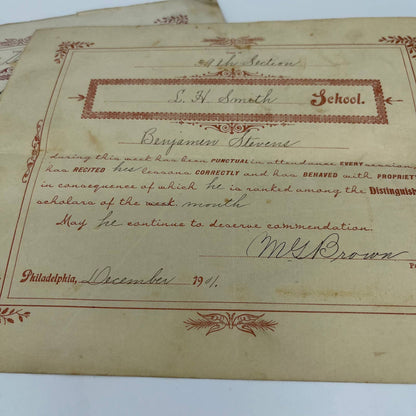 29th Section
L. H. Smith School.
Benjamin Stevens
during this week has been PUNCTUAL in attendance EVERY session
has RECITED his lessons CORRECTLY and has BEHAVED with PROPRIET
in consequence of which he is ranked among the Distinguish
scholars of the week. month
May he continue to deserve commendation.
M G Brown
Philadelphia, December 1901.